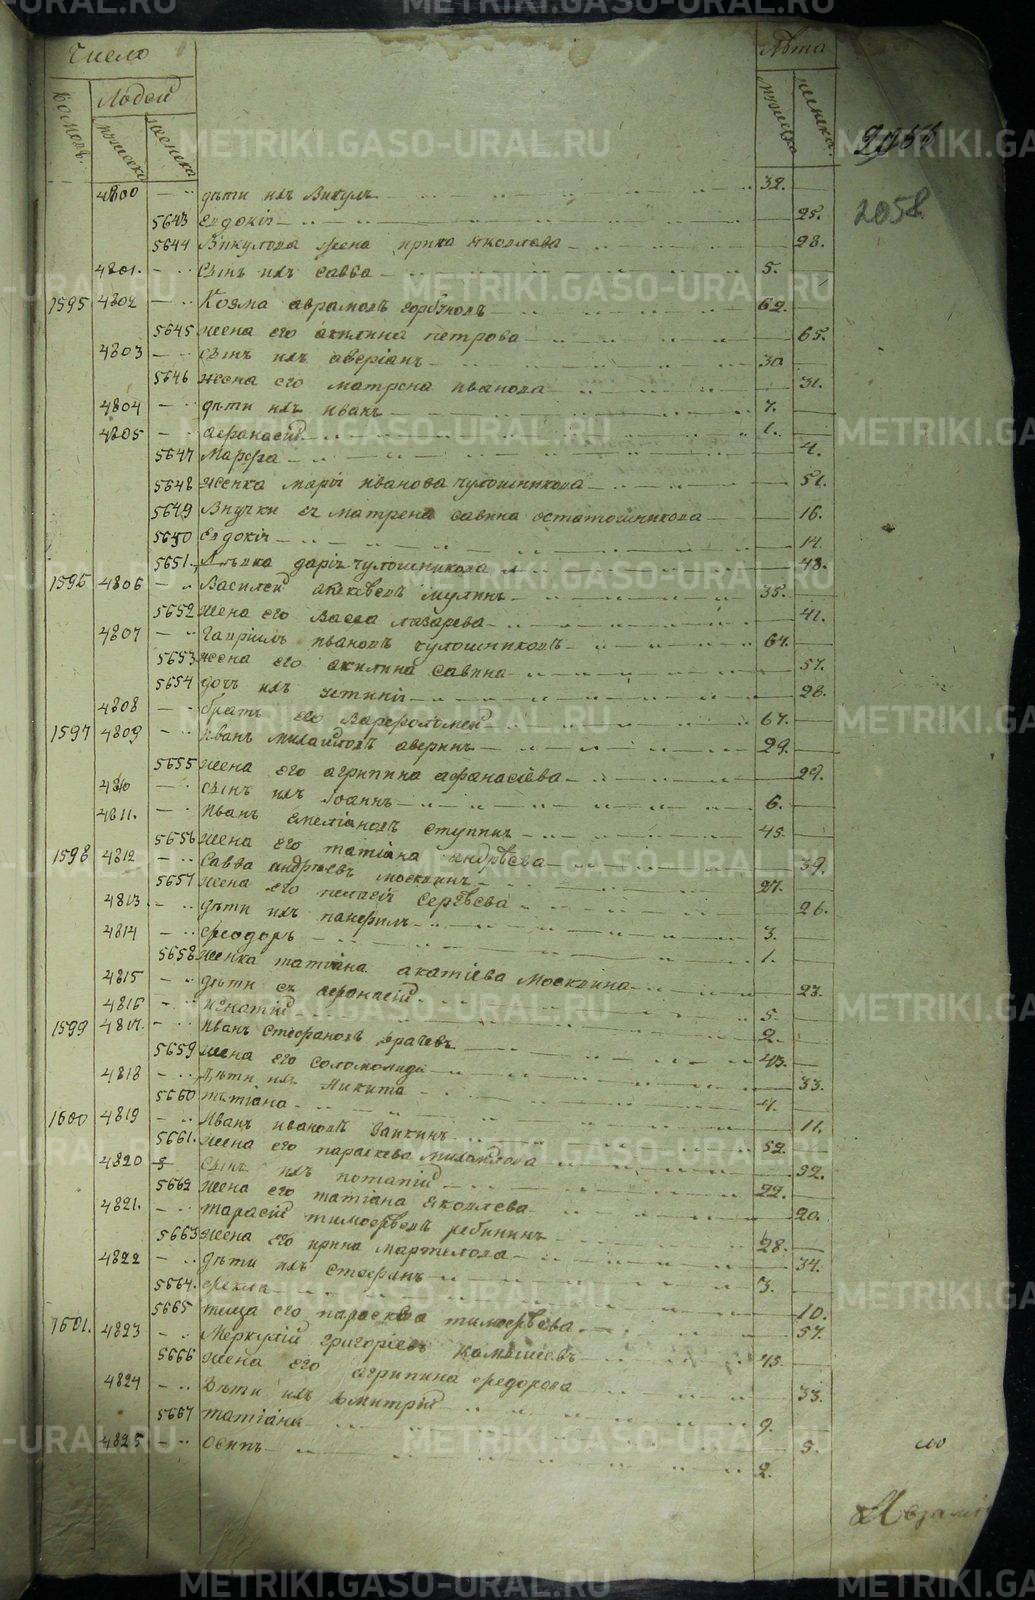 METRIKI.GASO-URAL.RU
Число
Людей
Лѣта
домовъ.
мужеска
женска
мужеска
женска.
2058
4800 дѣти ихъ Викулъ 32.
5643 Евдокія 25.
5644 Викулова жена ирина яковлева 28.
4801. сынъ ихъ савва 5.
1595 4802 Козма аврамовъ горбуновъ 62.
5645 жена его акилина петрова 65.
4803 сынъ ихъ аверіанъ 30.
5646 жена его матрена иванова 31.
4804 дѣти ихъ иванъ 7.
4805 афанасій 1.
5647 Марфа 4.
5648 женка марія иванова чулошникова 51.
5649 Внучки ея матрена савина остатошникова 16.
5650 Евдокія 14.
5651. дѣвка дарія чулошникова 48.
1596 4806 Василей мулинъ 35.
5652 жена его васса лазарева 41.
4807 Гавріилъ ивановъ чулошниковъ 61.
5653 жена его акилина савина 57.
5654 дочь ихъ устинія 28.
4808 братъ его варфоломей 67.
1597 4809 иванъ михайловъ аверинъ 29.
5655 жена его агрипина афанасіева 29.
4810 сынъ ихъ іоаннъ 6.
4811. иванъ емеліановъ ступинъ 45.
5656 жена его татіана андрѣева 39.
1598 4812 Савва андрѣевъ москвинъ 27.
5657 жена его пелагія сергѣева 26.
4813. дѣти ихъ панфилъ 3.
4814 феодоръ 1.
5658 женка татіана акатіева москвина 23.
4815 дѣти ея афанасій 5.
4816 игнатій 2.
1599 4817. иванъ стефановъ 43.
5659 жена его соломонида 33.
4818 дѣти ихъ никита 4.
5660 татіана 11.
1600 4819 иванъ ивановъ заикинъ 52.
5661. жена его параскева михайлова 32.
4820 сынъ ихъ потапій 22.
5662 жена его татіана яковлева 20.
4821. тарасій тимофѣевъ рябининъ 28.
5663 жена его ирина мартемова 34.
4822 дѣти ихъ стефанъ 3.
5664. фекла 10.
5665 теща его параскева тимофѣева 57.
1601. 4823 Меркулій григоріевъ камышевъ 45.
5666 жена его агрипина федорова 33.
4824 дѣти ихъ димитрій 9.
5667 татіана 5.
4825 осипъ 2.